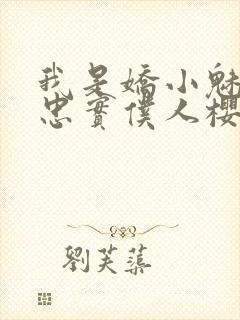 我是嬌小魅
忠實僕人櫻
劉芙蕖